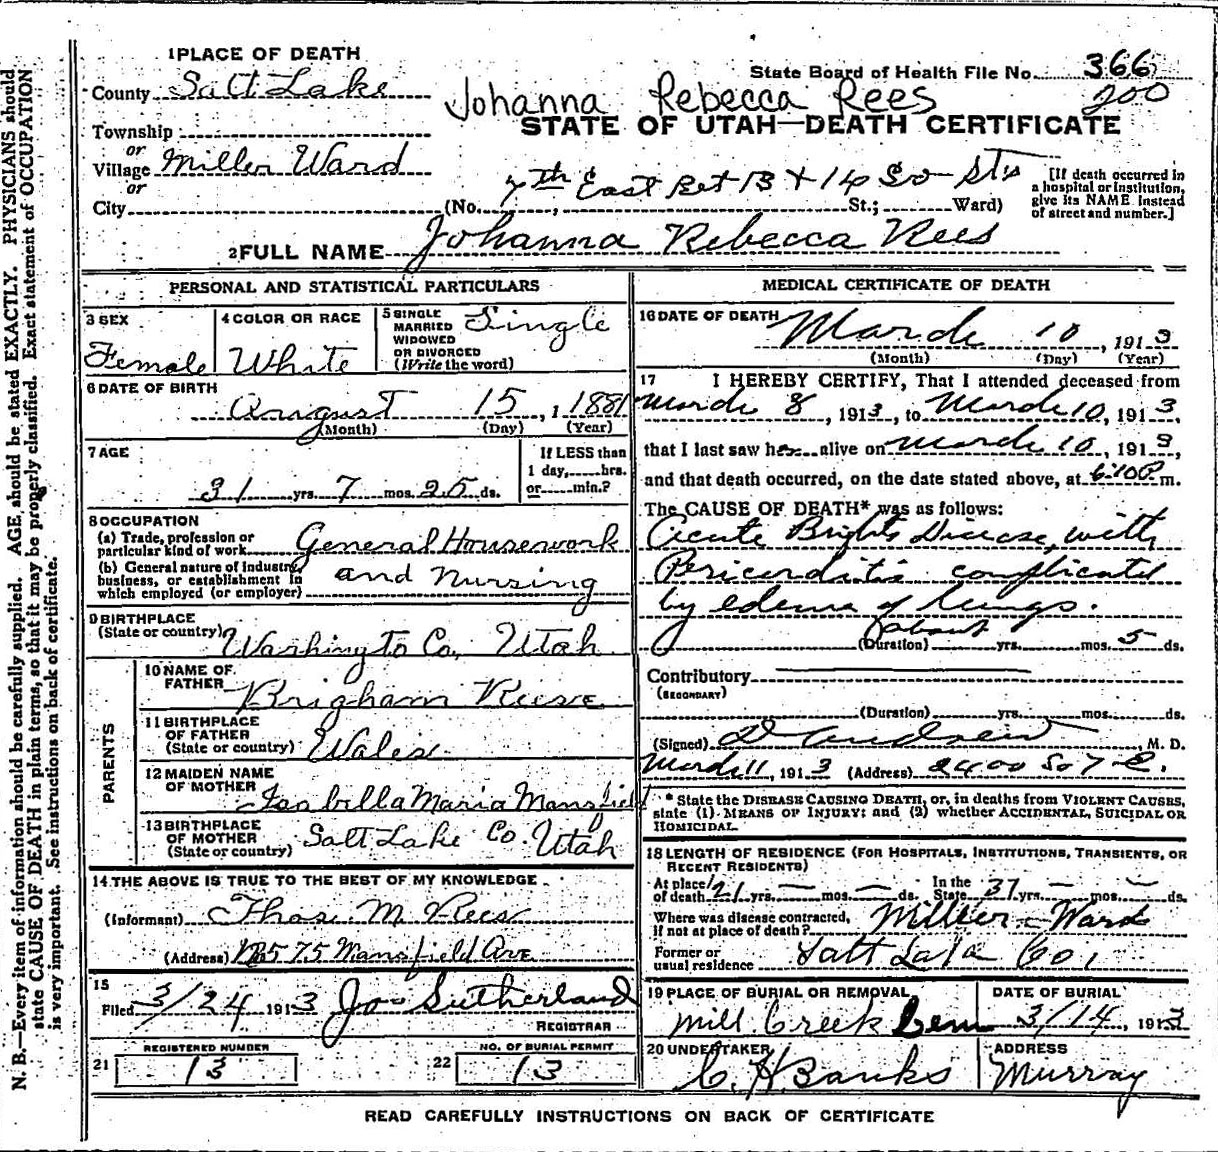 1 PLACE OF DEATH
State Board of Health File No. 366
County Salt Lake
Johanna Rebecca Rees 200
STATE OF UTAH—DEATH CERTIFICATE
Township
or
Village Miller Ward
or
City (No. 7th East Bet 13 + 14 So Sts St.; Ward)
[If death occurred in a hospital or institution, give its NAME instead of street and number.]
2 FULL NAME Johanna Rebecca Rees
PERSONAL AND STATISTICAL PARTICULARS
3 SEX Female
4 COLOR OR RACE White
5 SINGLE MARRIED WIDOWED OR DIVORCED (Write the word) Single
6 DATE OF BIRTH
August 15, 1 1881
(Month) (Day) (Year)
7 AGE
31 yrs. 7 mos. 25 ds.
If LESS than 1 day, hrs. or min.?
8 OCCUPATION
(a) Trade, profession or particular kind of work General Housework
(b) General nature of industry, business, or establishment in which employed (or employer) and Nursing
9 BIRTHPLACE
(State or country) Washington Co, Utah
PARENTS
10 NAME OF FATHER Brigham Reese
11 BIRTHPLACE OF FATHER (State or country) Wales
12 MAIDEN NAME OF MOTHER Isabilla Maria Mansfield
13 BIRTHPLACE OF MOTHER (State or country) Salt Lake Co. Utah
14 THE ABOVE IS TRUE TO THE BEST OF MY KNOWLEDGE
(Informant) Thos. M Rees
(Address) 575 Mansfield Ave
15
Filed 3/24 1913 Jos Sutherland
REGISTRAR
21 REGISTERED NUMBER 13
22 NO. OF BURIAL PERMIT 13
MEDICAL CERTIFICATE OF DEATH
16 DATE OF DEATH March 10, 1913
(Month) (Day) (Year)
17 I HEREBY CERTIFY, That I attended deceased from
March 8, 1913, to March 10, 1913,
that I last saw her alive on March 10, 1913,
and that death occurred, on the date stated above, at 6:10 P m.
The CAUSE OF DEATH* was as follows:
Acute Brights Disease, with
Pericarditis complicated
by edema of lungs.
about
(Duration) yrs. mos. 5 ds.
Contributory
(SECONDARY)
(Duration) yrs. mos. ds.
(Signed) M. D.
March 11, 1913 (Address) 2400 So 7 E.
* State the DISEASE CAUSING DEATH, or, in deaths from VIOLENT CAUSES, state (1) MEANS OF INJURY; and (2) whether ACCIDENTAL, SUICIDAL OR HOMICIDAL.
18 LENGTH OF RESIDENCE (FOR HOSPITALS, INSTITUTIONS, TRANSIENTS, OR RECENT RESIDENTS)
At place of death 21 yrs. — mos. — ds. In the State 37 yrs. — mos. — ds.
Where was disease contracted, if not at place of death? Miller Ward
Former or usual residence Salt Lake Co.
19 PLACE OF BURIAL OR REMOVAL
Mill Creek Cem
DATE OF BURIAL
3/14, 1913
20 UNDERTAKER
C. H Banks
ADDRESS
Murray
READ CAREFULLY INSTRUCTIONS ON BACK OF CERTIFICATE
N. B.—Every item of information should be carefully supplied. AGE should be stated EXACTLY. PHYSICIANS should
state CAUSE OF DEATH in plain terms, so that it may be properly classified. Exact statement of OCCUPATION
is very important. See instructions on back of certificate.